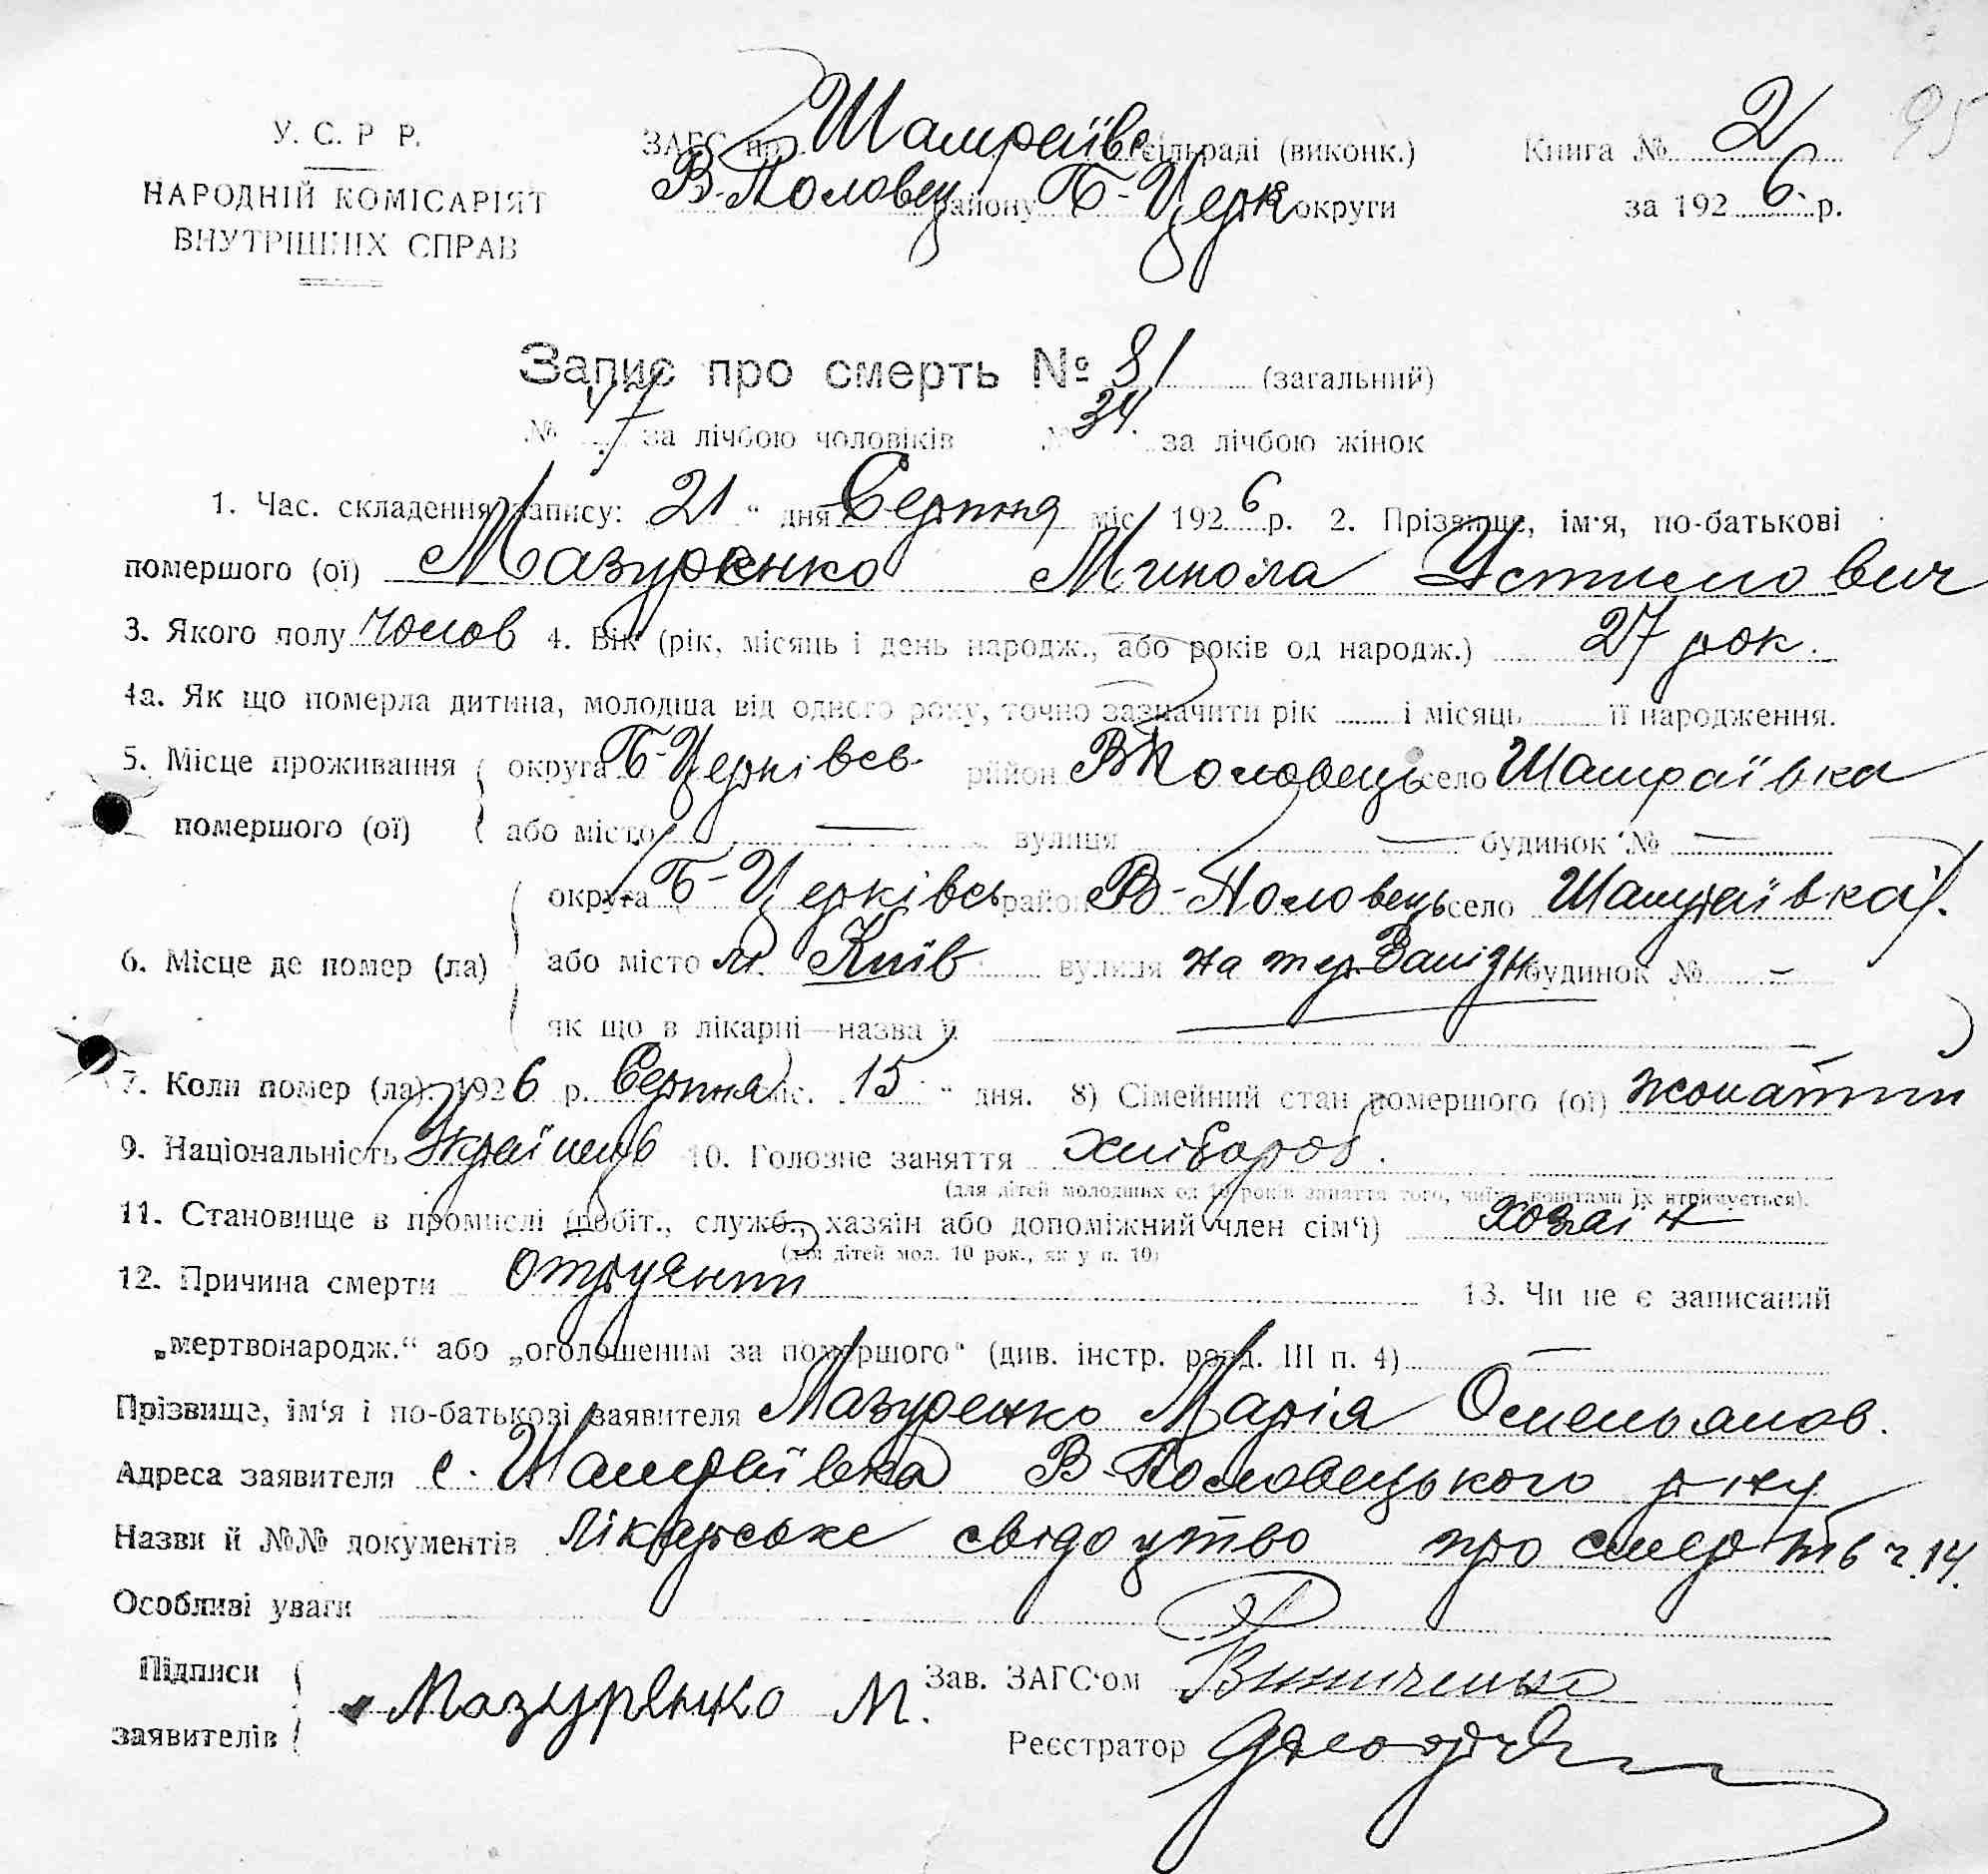 У. С. Р Р.
НАРОДНІЙ КОМІСАРІЯТ
ВНУТРІШНІХ СПРАВ
ЗАГС при Шамраївс сільраді (виконк.)
В-Половец району Б-Церк округи
Книга № 2
за 1926 р.
95
Запис про смерть № 81 (загальний)
№ 47 за лічбою чоловіків № 34. за лічбою жінок
1. Час. складення запису: 21 " дня Серпня міс 1926 р. 2. Прізвище, ім'я, по-батькові
помершого (ої) Мазуренко Микола Устинович
3. Якого полу чолов 4. Вік (рік, місяць і день народж., або років од народж.) 27 рок.
4а. Як що померла дитина, молодша від одного року, точно зазначити рік і місяць її народження.
5. Місце проживання помершого (ої) округа Б-Церківсь район В Половець село Шамраївка
або місто — вулиця — будинок № —
6. Місце де помер (ла) округа Б-Церківсь район В-Половець село Шамраївка
або місто м. Київ вулиця на тер. Заліз будинок № -
як що в лікарні—назва її
7. Коли помер (ла). 1926 р. Серпня міс. 15 " дня. 8) Сімейний стан помершого (ої) жонатий
9. Національність Українец 10. Головне заняття хлібороб.
(для дітей молодших од 10 років заняття того, чиїми коштами їх втримується).
11. Становище в промислі (робіт., служб., хазяїн або допоміжний член сім'ї) хозаїн
(для дітей мол. 10 рок., як у п. 10)
12. Причина смерти 13. Чи не є записаний
„мертвонародж.“ або „оголошеним за помершого“ (див. інстр. розд. III п. 4) —
Прізвище, ім'я і по-батькові заявителя Мазуренко Марія Омельянов.
Адреса заявителя с. Шамраївка В-Половецького р-ну
Назви й №№ документів Лікарське свідоцтво про смерть ч. 14.
Особливі уваги
Підписи заявителів Мазуренко М.
Зав. ЗАГС'ом Виниченко
Реєстратор